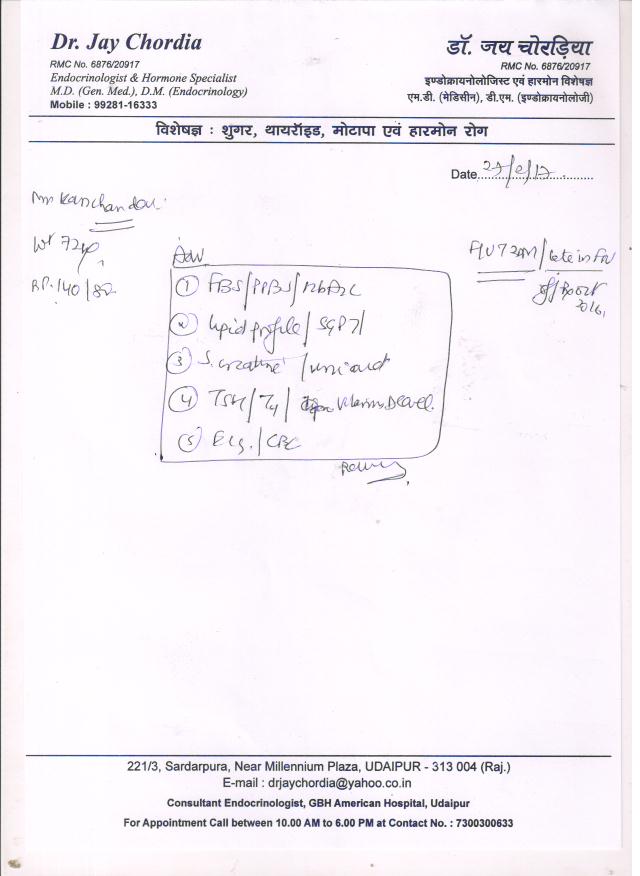 Dr. Jay Chordia
RMC No. 6876/20917
Endocrinologist & Hormone Specialist
M.D. (Gen. Med.), D.M. (Endocrinology)
Mobile : 99281-16333
डॉ. जय चोरड़िया
RMC No. 6876/20917
इण्डोक्रायनोलोजिस्ट एवं हारमोन विशेषज्ञ
एम.डी. (मेडिसीन), डी.एम. (इण्डोक्रायनोलोजी)
विशेषज्ञ : शुगर, थायरॉइड, मोटापा एवं हारमोन रोग
Date
Wt 72
BP. 140/82
Adv
① FBS/PPBS/HbA1C
② Lipid profile/SGPT/
③ S. creatine / uric acid
④ TSH/T4/ Vitamin D level.
⑤ ECG./CBC
F/U T2DM/late in F/U
2016
221/3, Sardarpura, Near Millennium Plaza, UDAIPUR - 313 004 (Raj.)
E-mail : drjaychordia@yahoo.co.in
Consultant Endocrinologist, GBH American Hospital, Udaipur
For Appointment Call between 10.00 AM to 6.00 PM at Contact No. : 7300300633